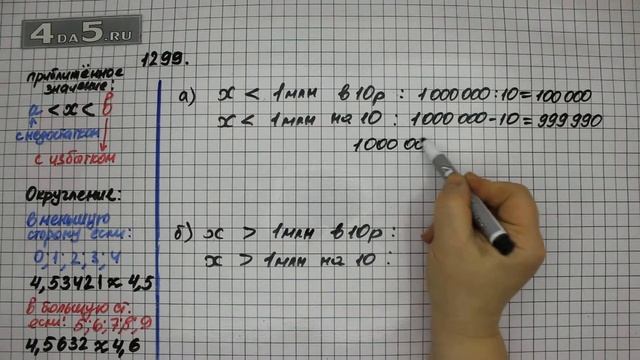 4DA5.RU
1299.
приближённое
значение:
a < x < b
с недостатком
с избытком
Округление:
в меньшую
сторону если:
0; 1; 2; 3; 4
4,53421 ≈ 4,5
в большую ст.
если: 5; 6; 7; 8; 9
4,5632 ≈ 4,6
а) x < 1 млн в 10 р : 1 000 000 : 10 = 100 000
x < 1 млн на 10 : 1 000 000 - 10 = 999 990
1 000 00
б) x > 1 млн в 10 р :
x > 1 млн на 10 :